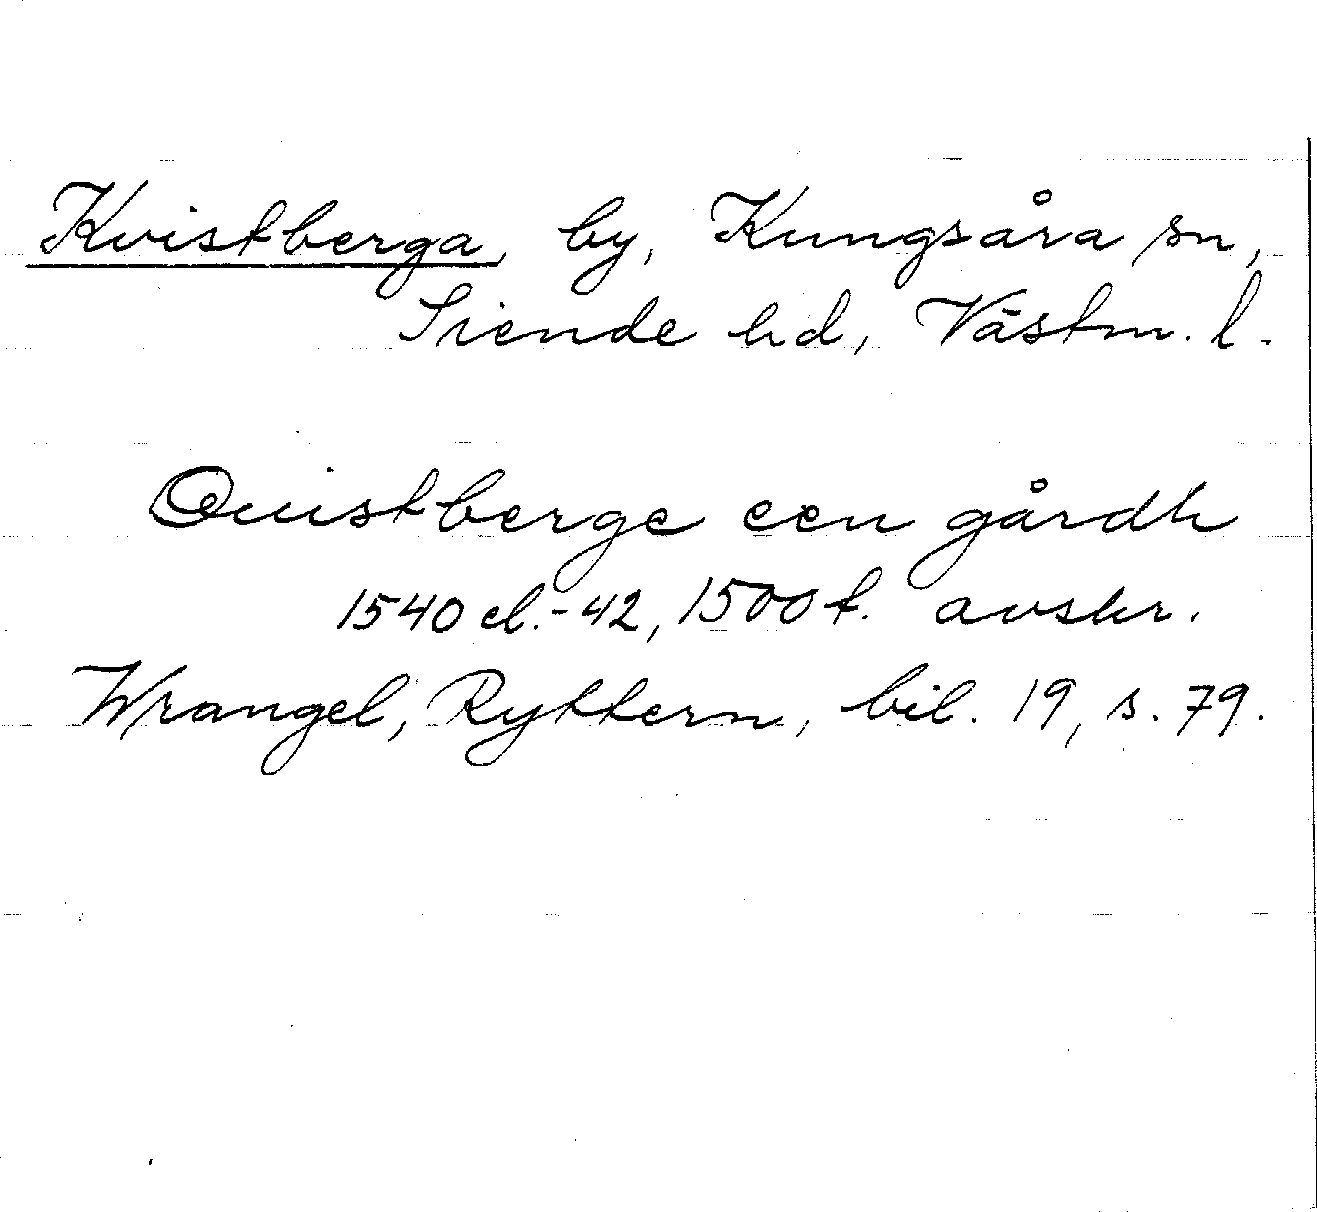 Kvistberga, by, Kungsåra sn,
Siende hd, Västm. l.
Quistberge een gårdh
1540 el.-42, 1500 t. avskr.
Wrangel, Ryttern, bil. 19, s. 79.